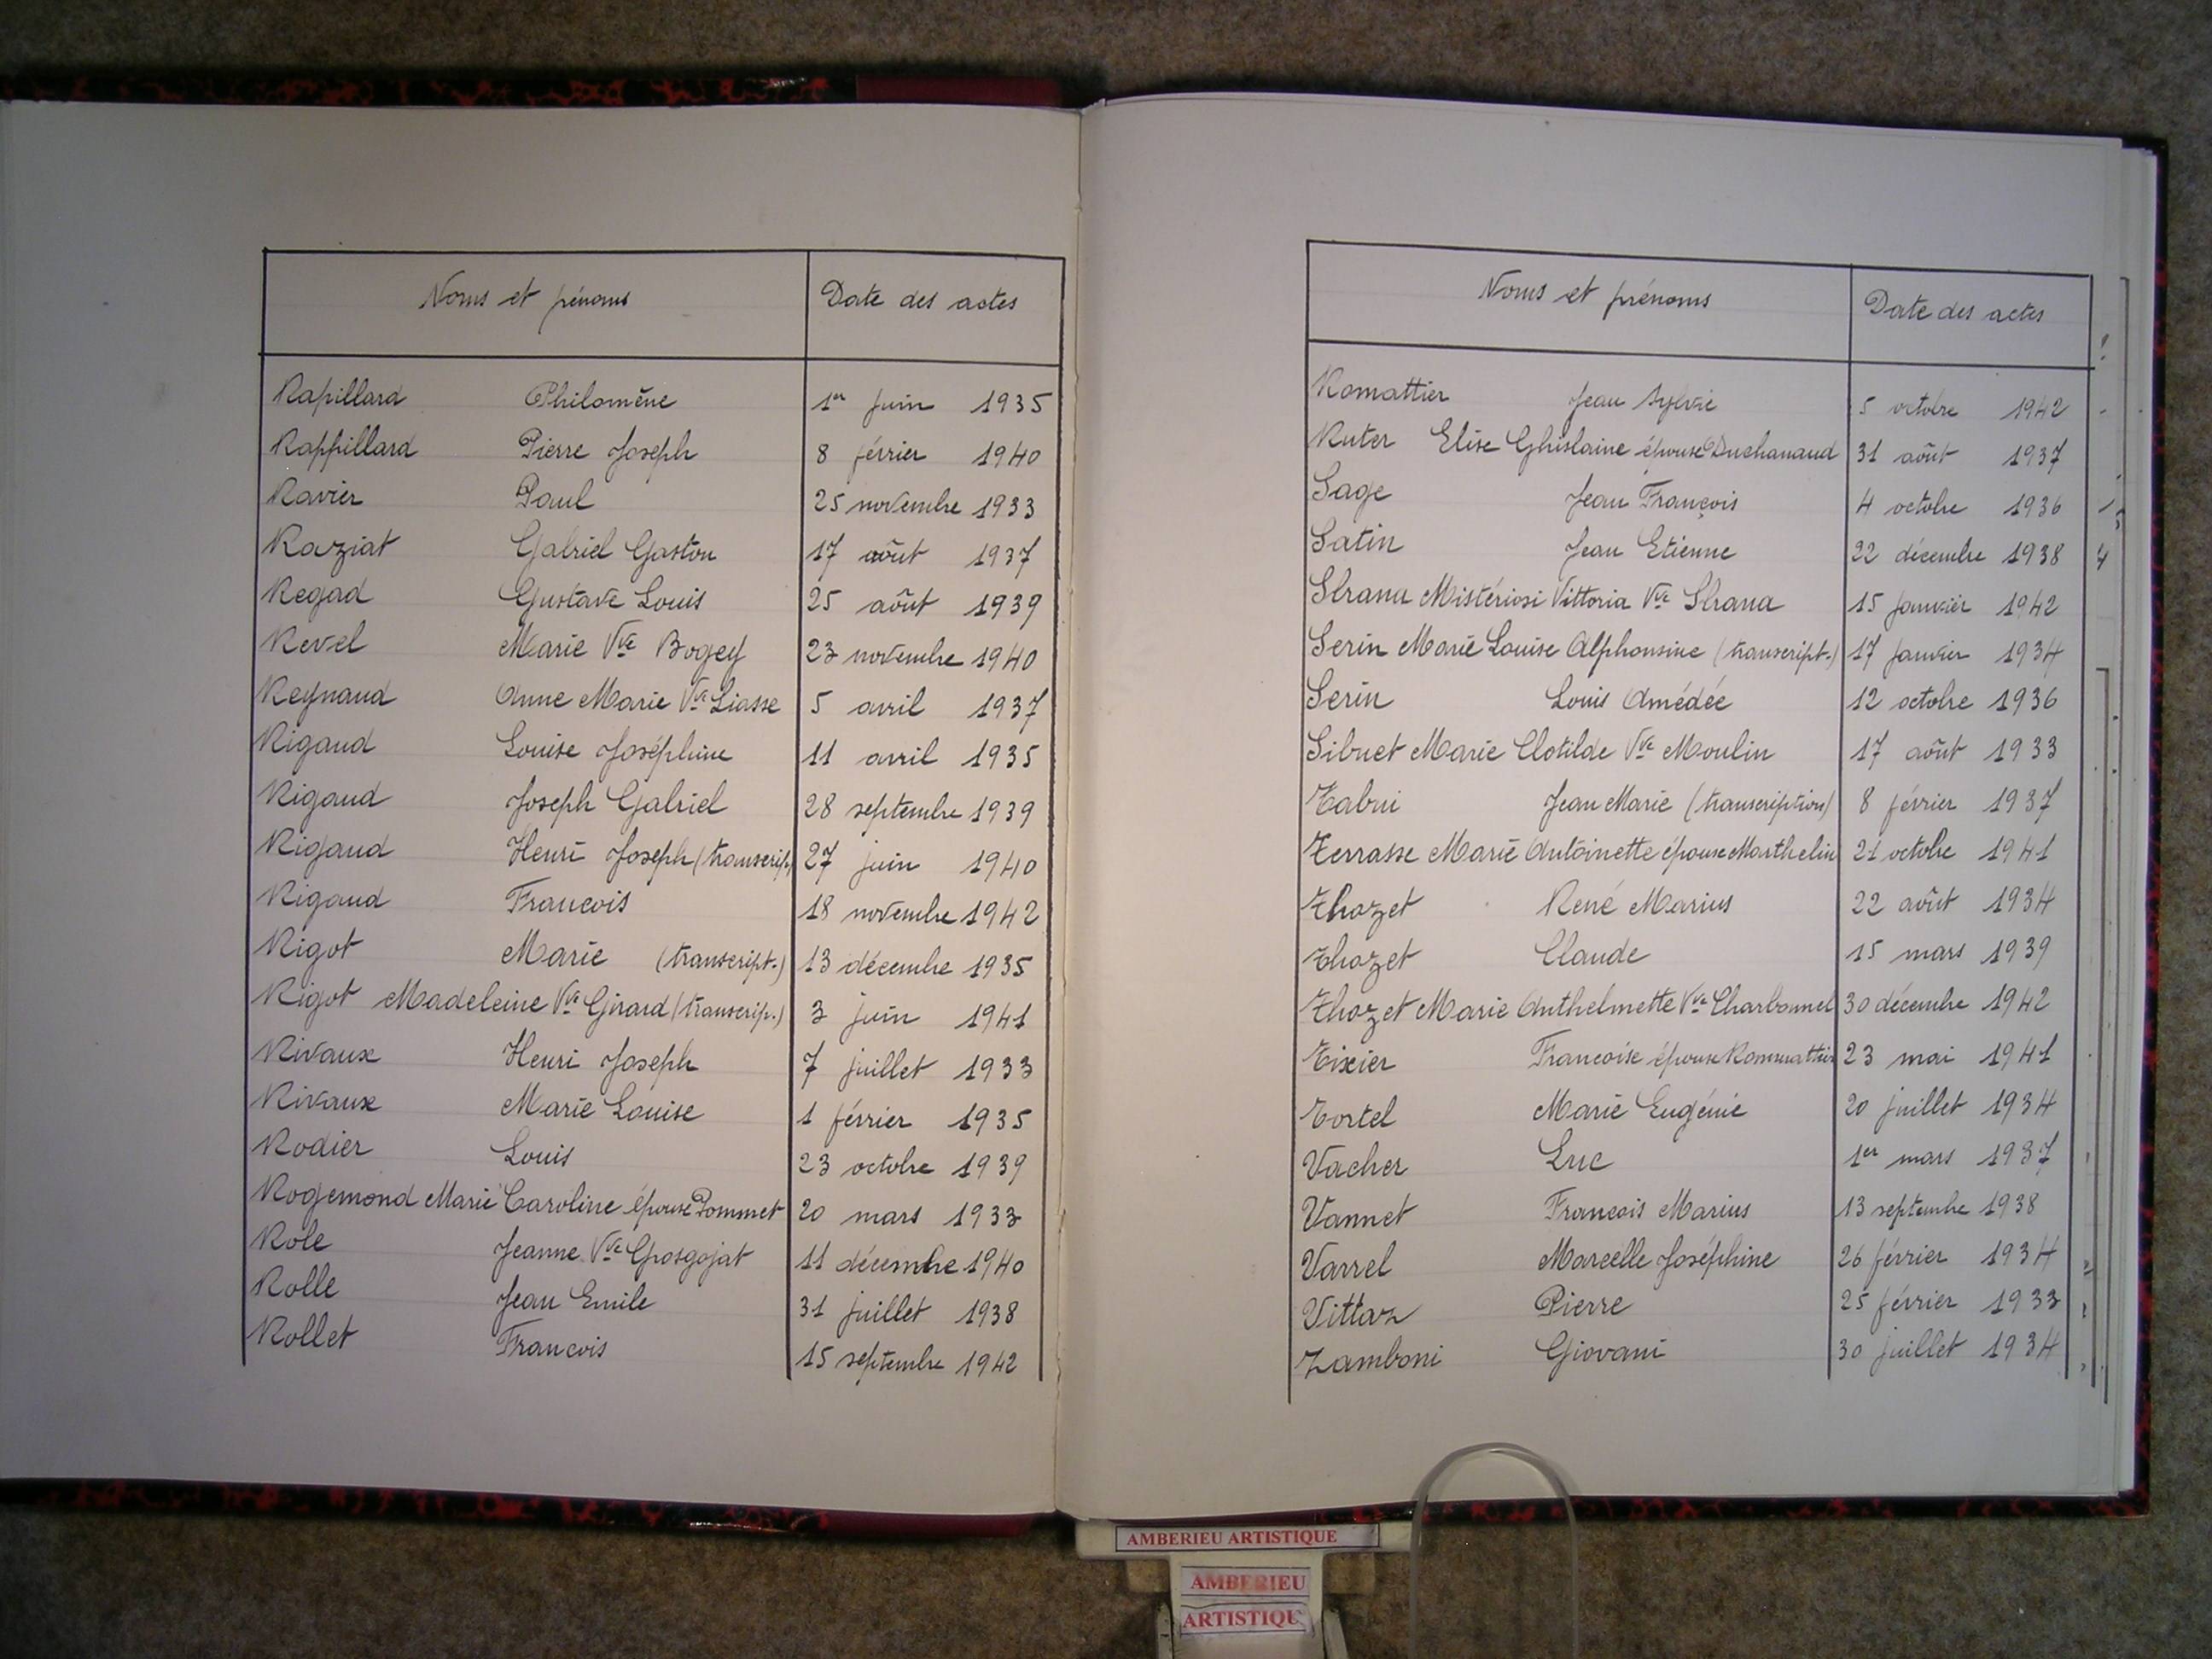 Noms et prénoms Date des actes
Rapillard Philomène 1er juin 1935
Rappillard Pierre Joseph 8 février 1940
Ravier Paul 25 novembre 1933
Raziat Gabriel Gaston 17 août 1937
Regad Gustave Louis 25 août 1939
Revel Marie Vve Bogey 23 novembre 1940
Reynaud Anne Marie Vve Liasse 5 avril 1937
Rigaud Louise Joséphine 11 avril 1935
Rigaud Joseph Gabriel 28 septembre 1939
Rigaud Henri Joseph (transcrip.) 27 juin 1940
Rigaud Francois 18 novembre 1942
Rigot Marie (transcript.) 13 décembre 1935
Rigot Madeleine Vve Girard (transcrip.) 3 juin 1941
Rivaux Henri Joseph 7 juillet 1933
Rivaux Marie Louise 1 février 1935
Rodier Louis 23 octobre 1939
Rogemond Marie Caroline épouse Pommet 20 mars 1933
Role Jeanne Vve Grosgojat 11 décembre 1940
Rolle Jean Emile 31 juillet 1938
Rollet Francois 15 septembre 1942
Noms et prénoms Date des actes
Romattier Jean Sylvie 5 octobre 1942
Ruter Elise Ghislaine épouse Duchanaud 31 août 1937
Sage Jean François 4 octobre 1936
Satin Jean Etienne 22 décembre 1938
Vittoria Vve 15 janvier 1942
Serin Marie Louise Alphonsine (transcript.) 17 janvier 1934
Serin Louis Amédée 12 octobre 1936
Sibuet Marie Clotilde Vve Moulin 17 août 1933
Jean Marie (transcription) 8 février 1937
Terrasse Marie Antoinette épouse Marthelin 21 octobre 1941
Thozet René Marius 22 août 1934
Thozet Claude 15 mars 1939
Thozet Marie Anthelmette Vve Charbonnel 30 décembre 1942
Tixier Francoise épouse 23 mai 1941
Tortel Marie Eugénie 20 juillet 1934
Vacher Luc 1er mars 1937
Vannet Francois Marius 13 septembre 1938
Varrel Marcelle Joséphine 26 février 1934
Vittaz Pierre 25 février 1933
Zamboni Giovani 30 juillet 1934
AMBERIEU ARTISTIQUE
AMBERIEU
ARTISTIQU